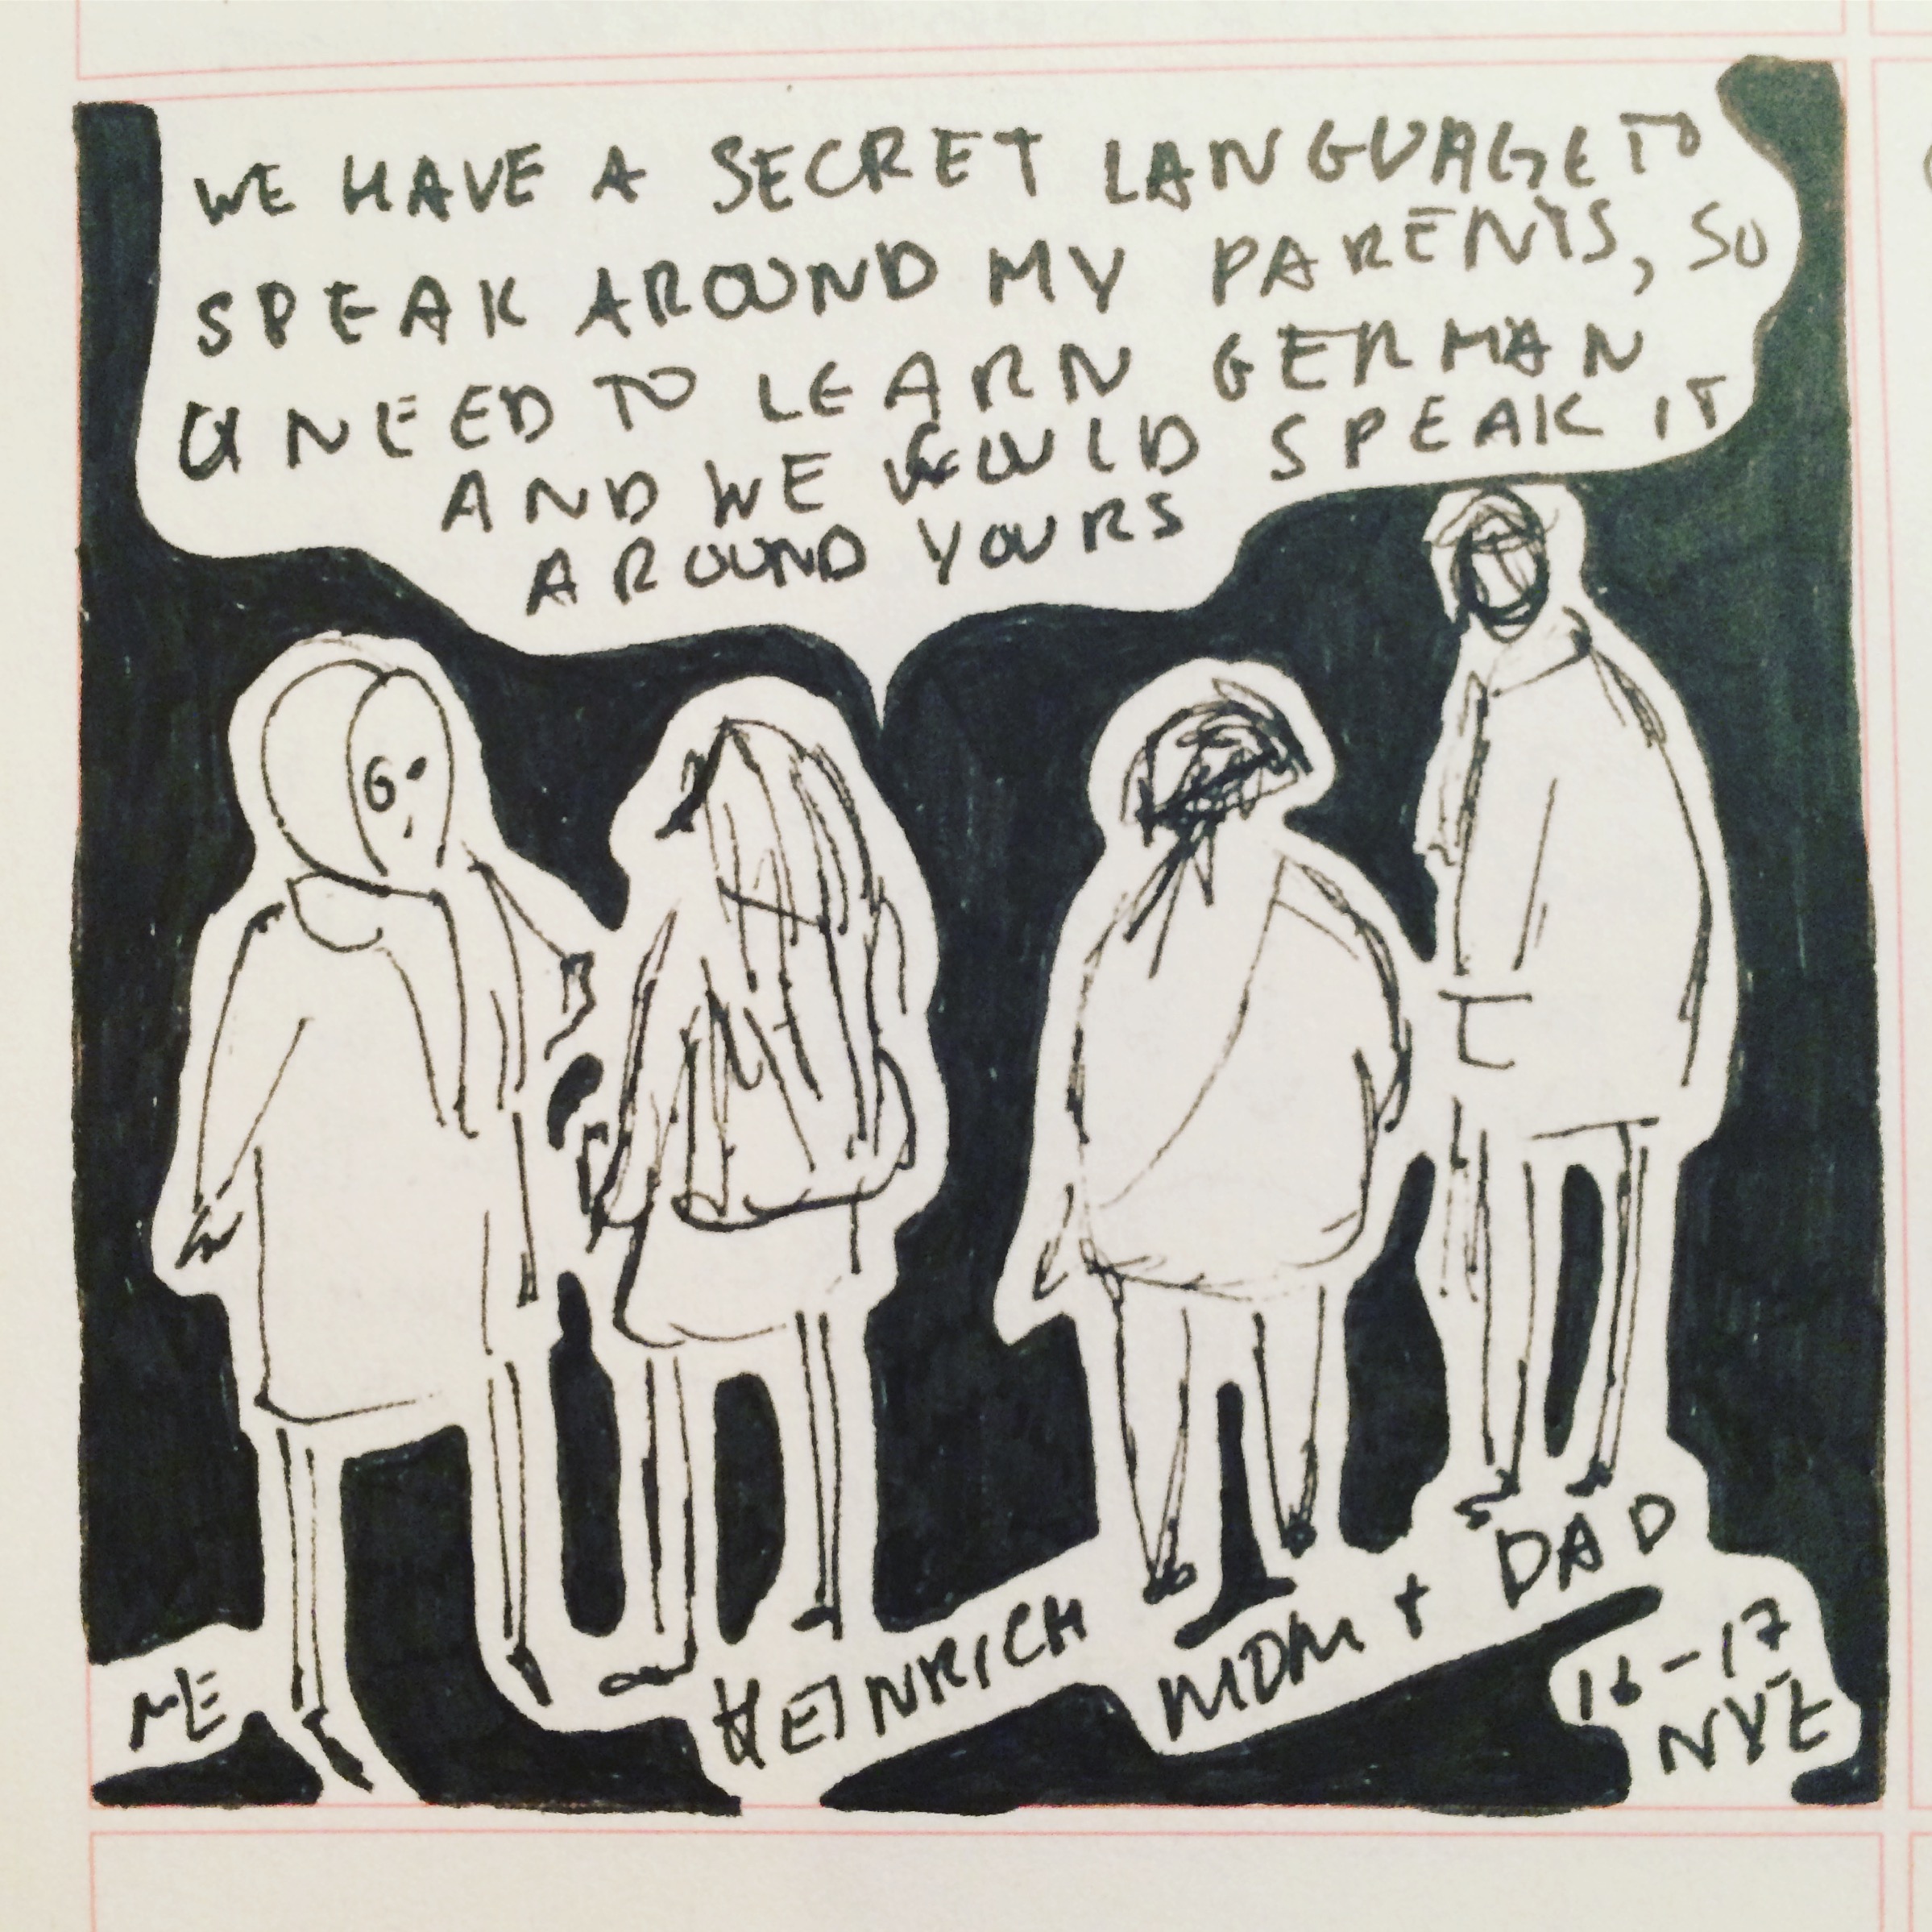 WE HAVE A SECRET LANGUAGE TO
SPEAK AROUND MY PARENTS, SO
U NEED TO LEARN GERMAN
AND WE WOULD SPEAK IT
AROUND YOURS
ME
HEINRICH
MOM + DAD
16-17
NYE